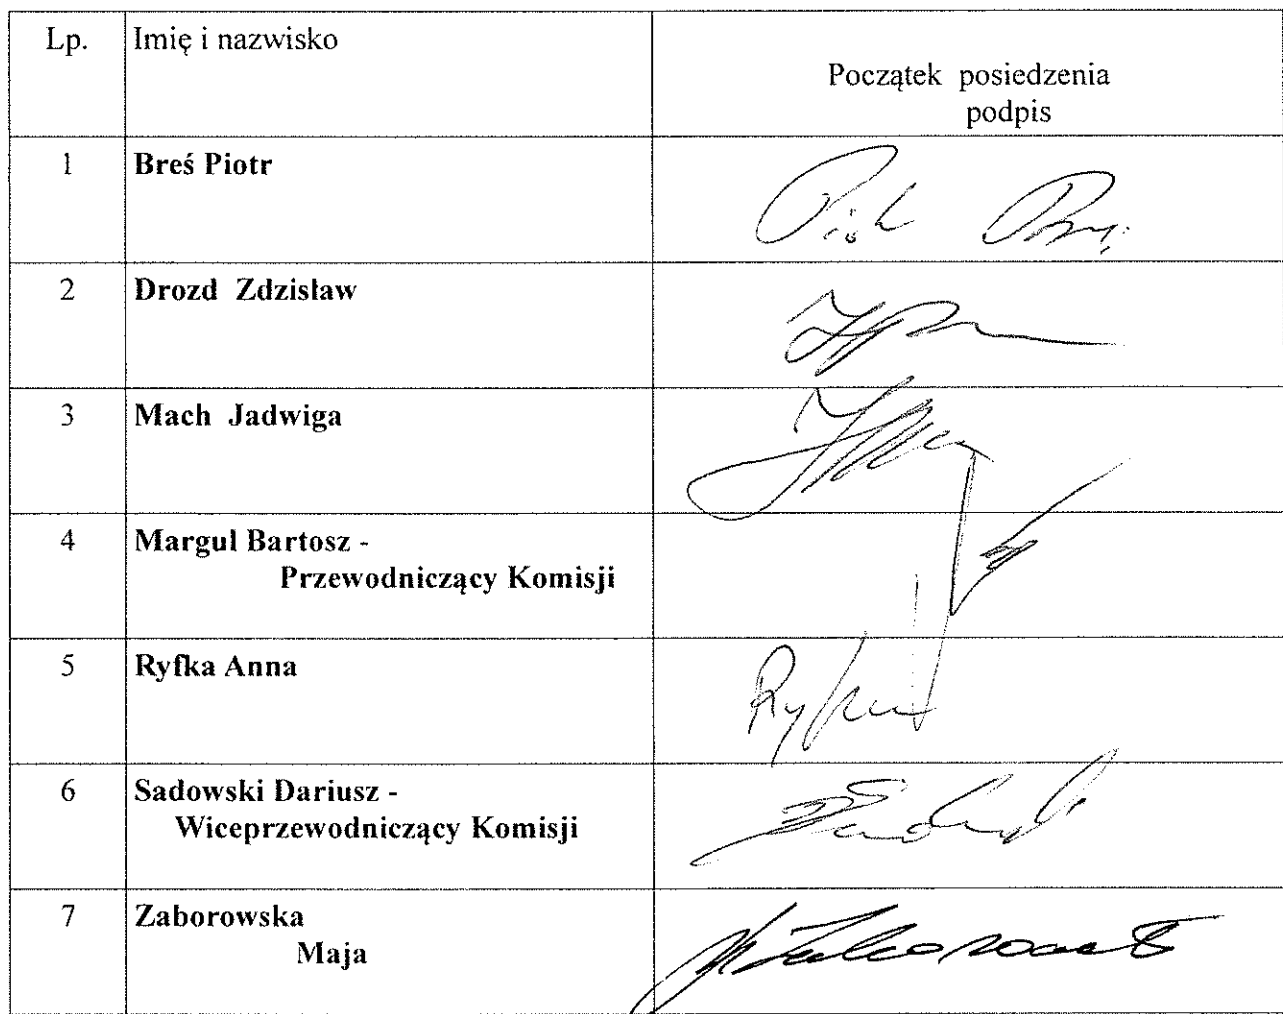 Lp. Imię i nazwisko
Początek posiedzenia
podpis
1 Breś Piotr
2 Drozd Zdzisław
3 Mach Jadwiga
4 Margul Bartosz -
Przewodniczący Komisji
5 Ryfka Anna
6 Sadowski Dariusz -
Wiceprzewodniczący Komisji
7 Zaborowska
Maja